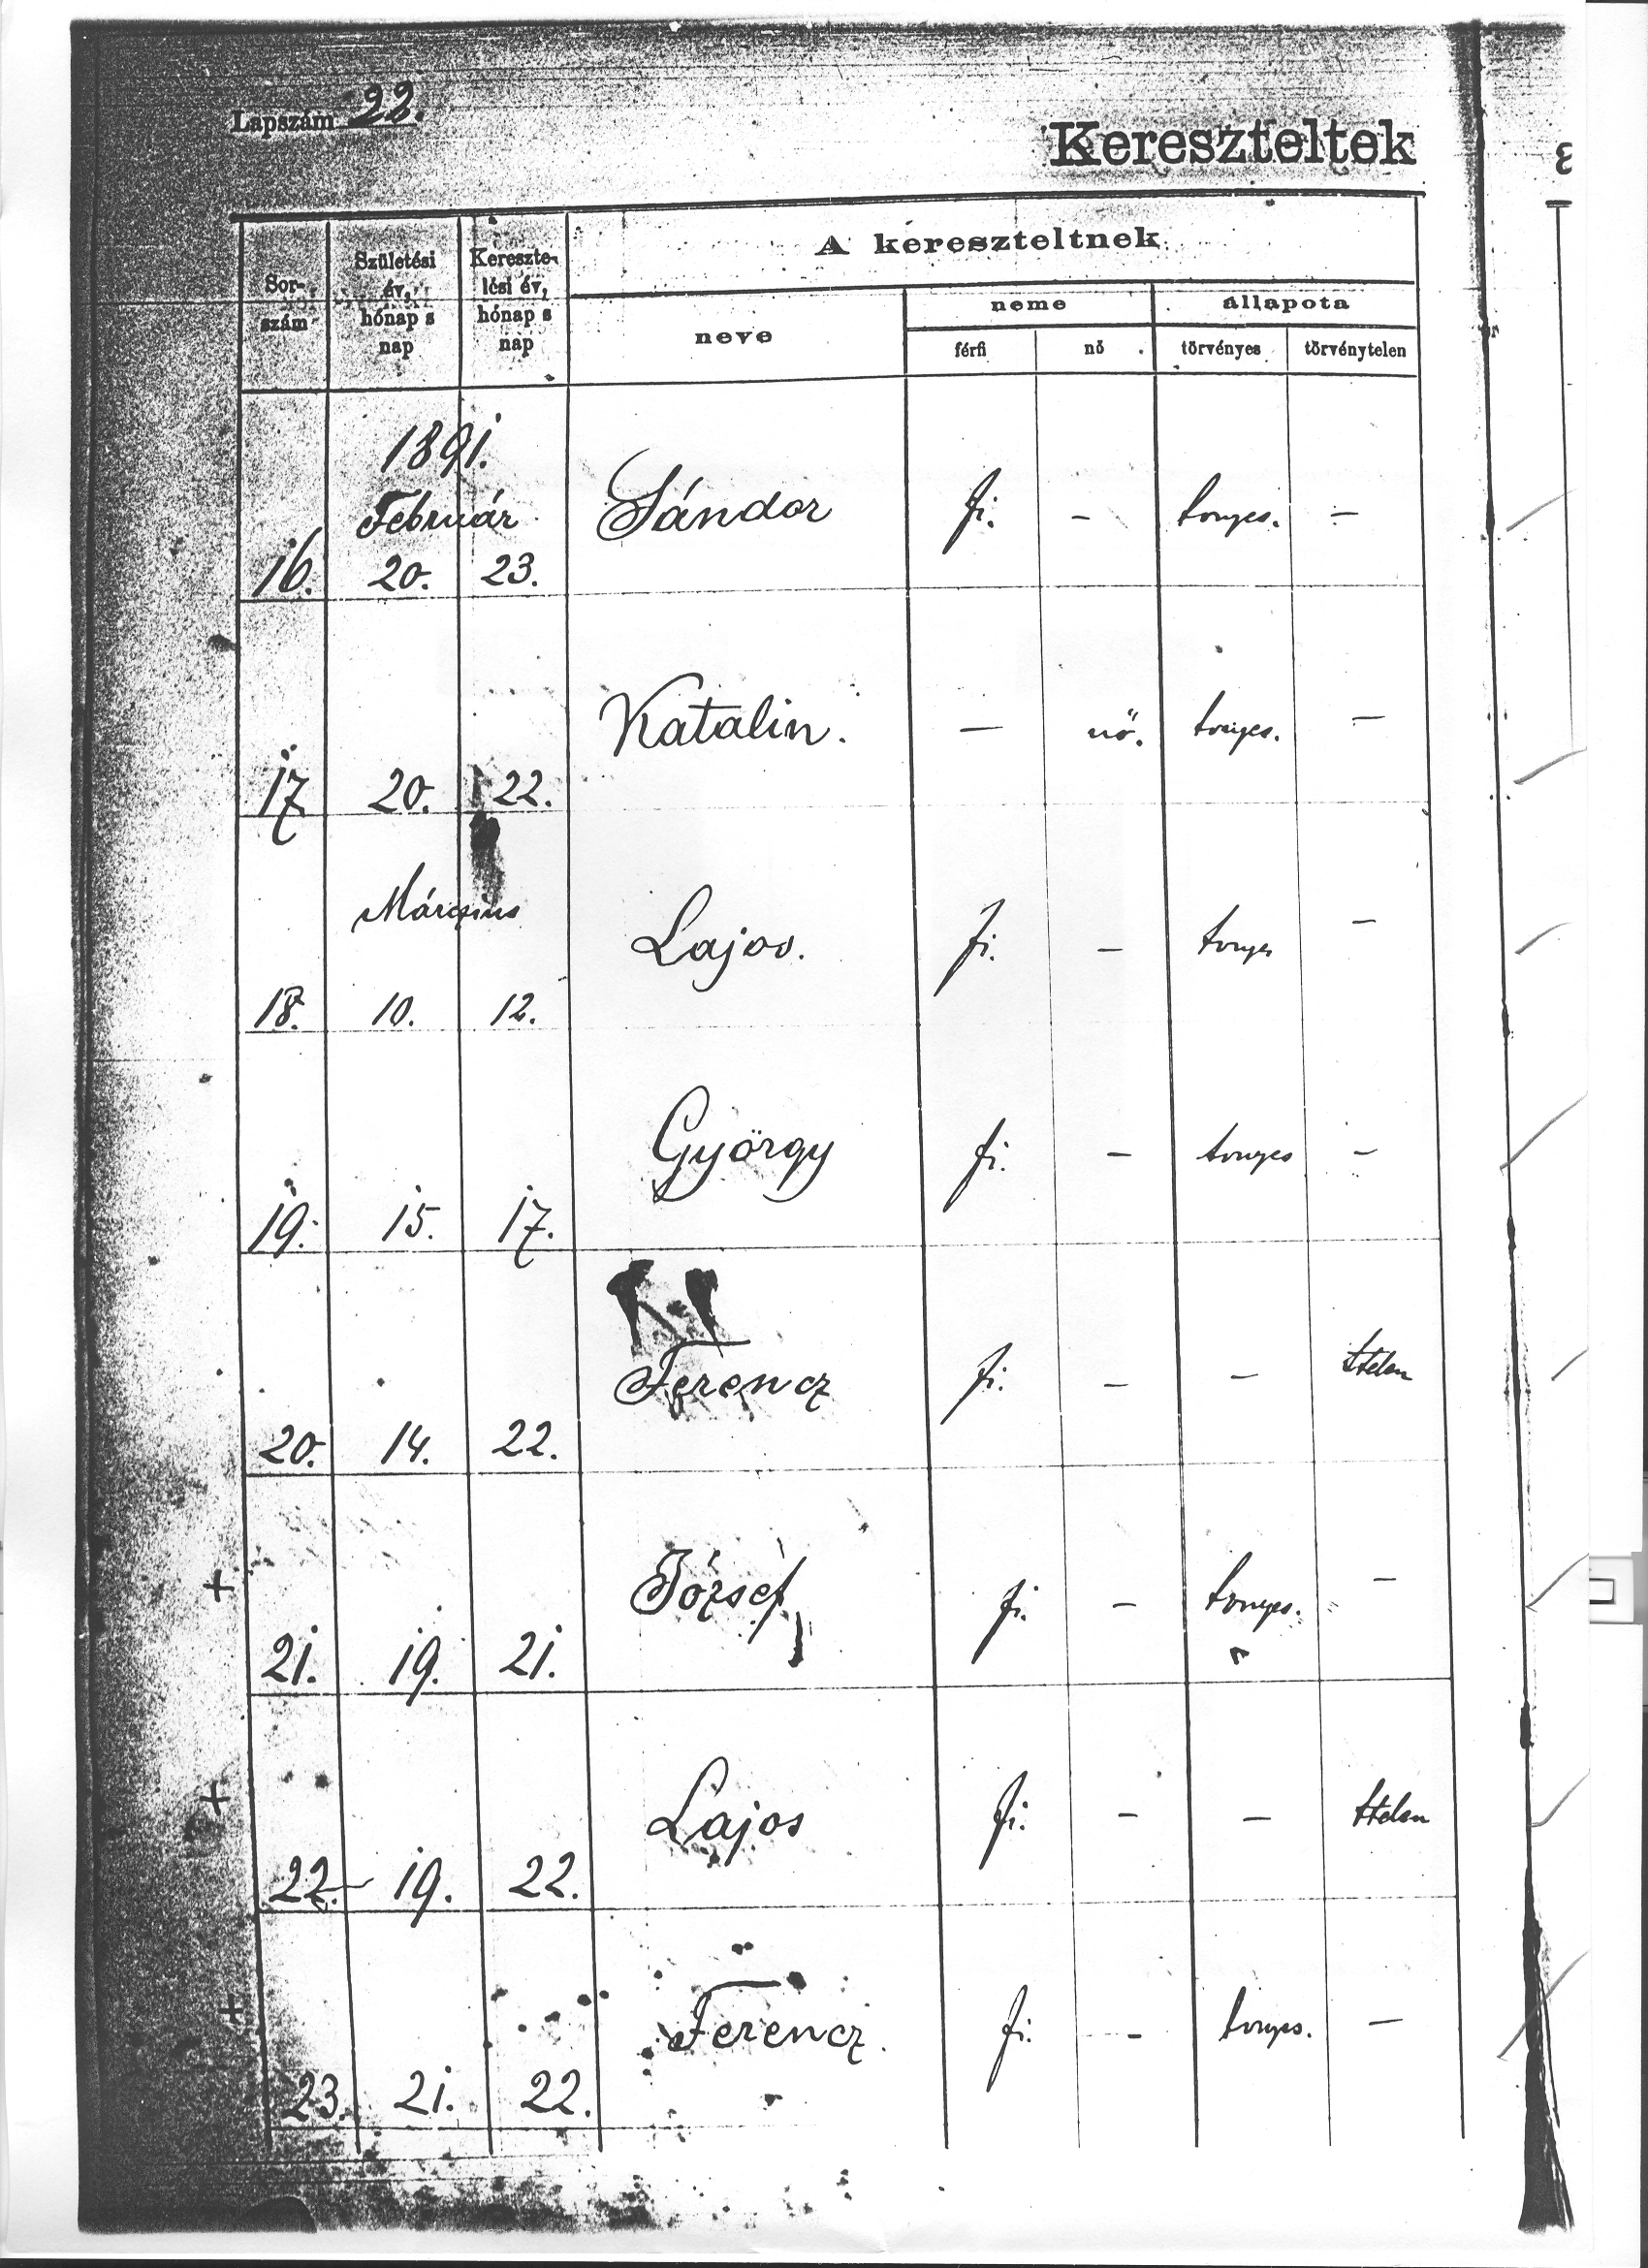 Lapszám 22.
Kereszteltek
Sor-
szám
Születési
év,
hónap s
nap
Keresztе-
lési év,
hónap s
nap
A kereszteltnek
neve
neme
állapota
férfi
nő
törvényes
törvénytelen
1891.
Február
16. 20. 23. Sándor fi. - tvnyes. -
17 20. 22. Katalin. - nő. tvnyes. -
Márczius
18. 10. 12. Lajos. fi. - tvnyes -
19. 15. 17. György fi. - tvnyes -
20. 14. 22. Ferencz fi. - - ttelen
+
21. 19. 21. József fi. - tvnyes. -
+
22. 19. 22. Lajos fi. - - ttelen
+
23. 21. 22. Ferencz. fi. - tvnyes. -